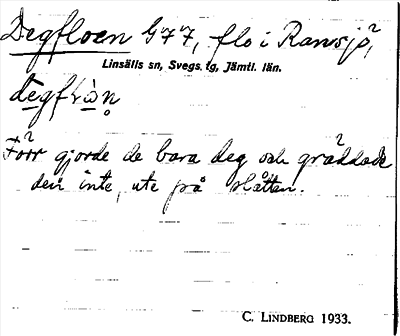 Degfloen G77, flo i Ransjö,
Linsälls sn, Svegs tg, Jämtl. län.
Förr gjorde de bara deg och gräddade
den inte, ute på slåtten.
C. LINDBERG 1933.